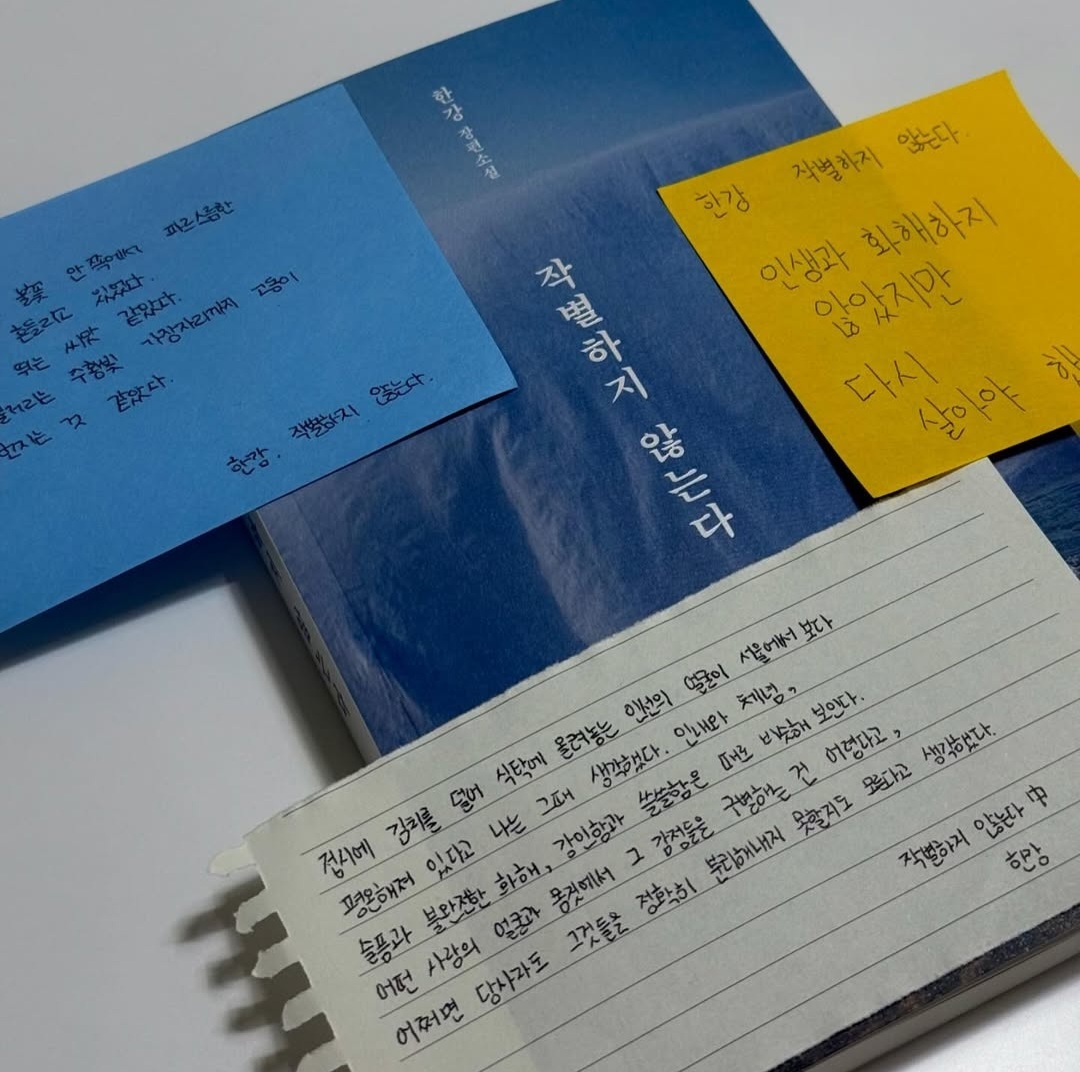 한강 장편소설
작별하지 않는다
불꽃 안쪽에서 파르스름한
흔들리고 있었다.
뛰는 씨앗 같았다.
주황빛 가장자리까지 고동이
지는 것 같았다.
한강. 작별하지 않는다.
한강 작별하지 않는다.
인생과 화해하지
않았지만
다시
살아야
접시에 김치를 덜어 식탁에 올려놓는 인선의 얼굴이 서울에서 보다
평온해져 있다고 나는 그때 생각했다. 인내와 체념,
슬픔과 불완전한 화해, 강인함과 쓸쓸함은 때로 비슷해 보인다.
어떤 사람의 얼굴과 몸짓에서 그 감정들을 구별하는 건 어렵다고,
어쩌면 당사자도 그것들을 정확히 분리해내지 못할지도 모른다고 생각했다.
작별하지 않는다 中
한강